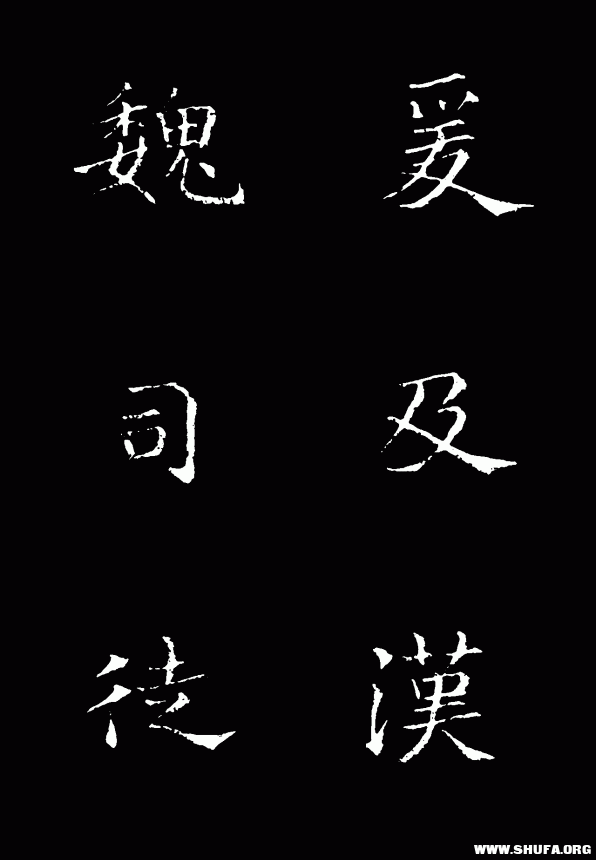 爰及漢
魏司徒
WWW.SHUFA.ORG